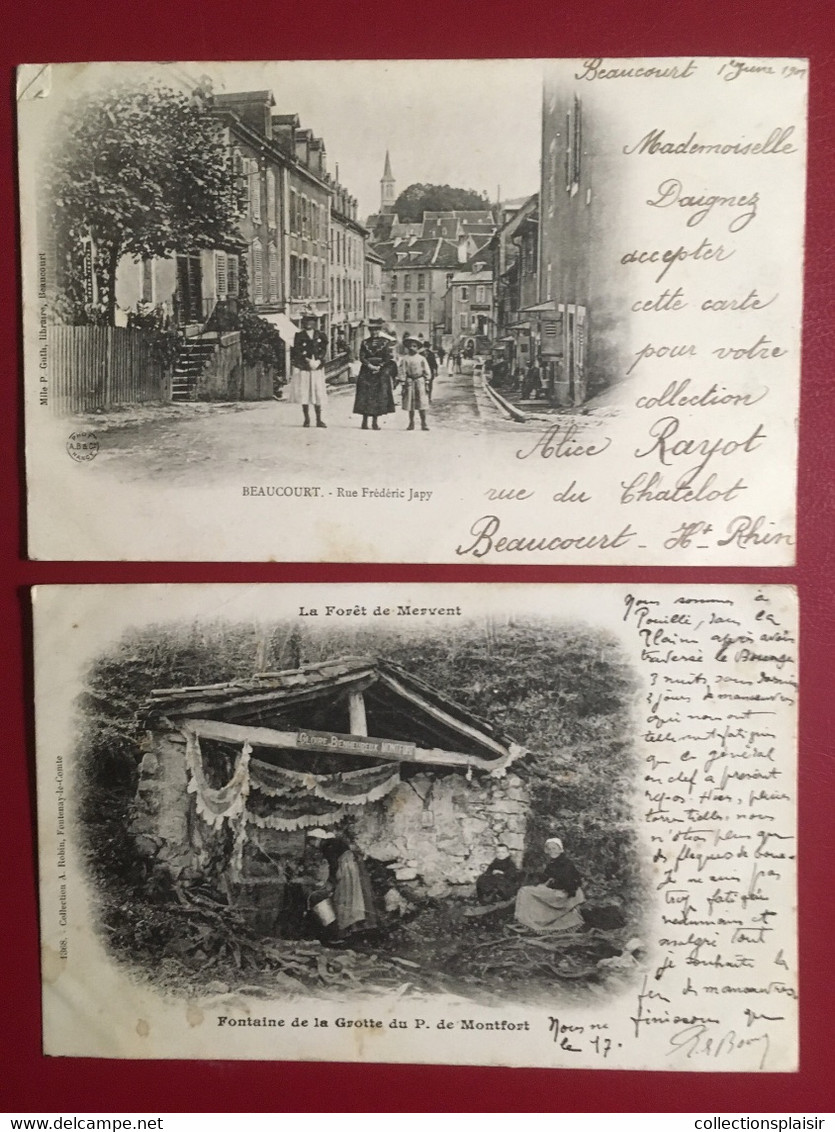 Beaucourt 1er Juin 1901
Mademoiselle
Daignez
accepter
cette carte
pour votre
collection
Alice Rayot
rue du Chatelot
Beaucourt - Ht Rhin
Mlle P. Guth, libraire, Beaucourt
BEAUCOURT. - Rue Frédéric Japy
La Forêt de Mervent
GLOIRE BIENHEUREUX MONTFORT
1368. - Collection A. Robin, Fontenay-le-Comte
Fontaine de la Grotte du P. de Montfort
Nous sommes à
Pouillé, dans la
Plaine après avoir
traversé le Bocage
3 nuits sans dormir
3 jours de manœuvres
qui nous ont
que ce général
en chef a présent
repos. Hier, pluies
torrentielles, nous
n'étions plus que
des flaques de boue
Je ne suis pas
trop fatigué
néanmoins et
malgré tout
je souhaite la
fin de manœuvres
Nous ne finissons que
le 17.
collectionsplaisir